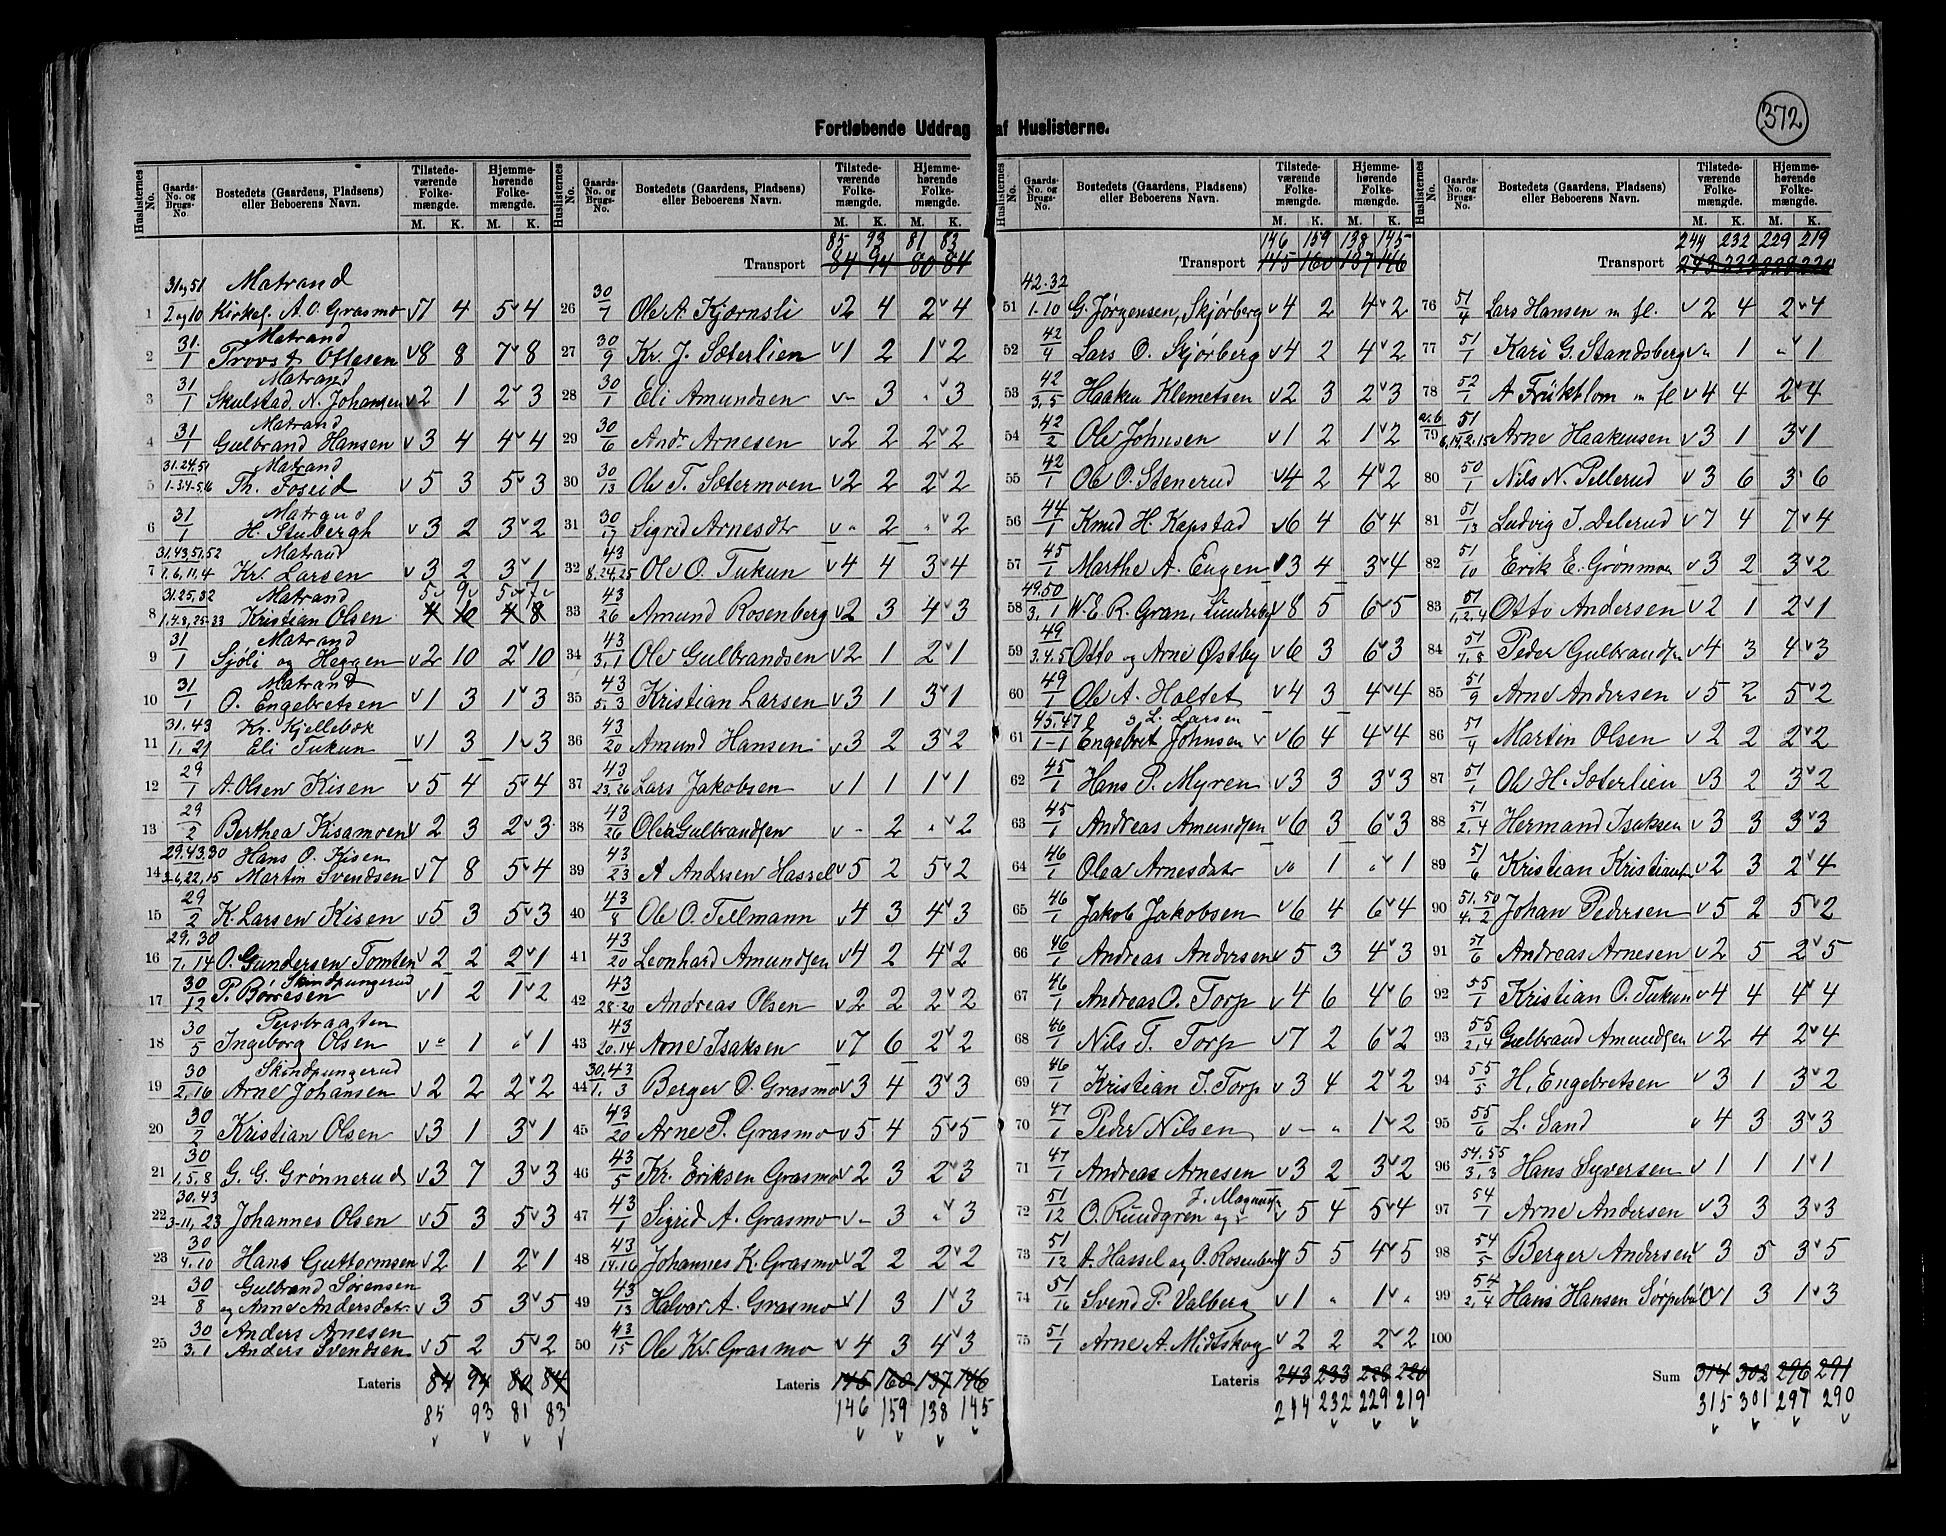 372
Fortløbende Uddrag af Huslisterne.
Huslisternes No. Gaards-No. og Brugs-No. Bostedets (Gaardens, Pladsens) eller Beboerens Navn. Tilstedeværende Folkemængde. M. K. Hjemmehørende Folkemængde. M. K.
31 og 51 Matrand
1 2 og 10 Kirkeg. A. O. Grasmo v 7 4 5 v 4
Matrand
2 31/1 Provst Ottesen v 8 8 7 v 8
Matrand
3 31/1 Skulstad, N. Johansen v 2 1 2 v 3
Matrand
4 31/1 Gulbrand Hansen v 3 4 4 v 4
31.24.51 Matrand
5 1-3.4-5,6 Th. Foseid v 5 3 5 v 3
Matrand
6 31/1 H. Stubergh v 3 2 3 v 2
31.43.51.52 Matrand
7 1,6,11,4 Kr. Larsen v 3 2 3 v 1
31.25,32 Matrand 5 v 9 v 5 v 7 v
8 1.4.8,25-33 Kristian Olsen 4 10 4 8
Matrand
9 31/1 Sjöli og Heggen v 2 10 2 v 10
Matrand
10 31/1 O. Engebretsen v 1 3 1 v 3
31.43 Kr. Kjellebök
11 1,21 Eli Tukun v 1 3 1 v 3
12 29/1 A. Olsen Kisen v 5 4 5 v 4
13 29/2 Berthea Kisamoen v 2 3 2 v 3
29.43.30 Hans O. Kisen
14 3-6,22,15 Martin Svendsen v 7 8 5 v 4
15 29/2 K. Larsen Kisen v 5 3 5 v 3
29,30
16 7,14 O. Gundersen Tomten v 2 2 2 v 1
Skindpungerud
17 30/12 P. Börresen v 1 2 1 v 2
Persbraaten
18 30/5 Ingeborg Olsen v " 1 " v 1
Skindpungerud
19 30/2,16 Arne Johansen v 2 2 2 v 2
20 30/7 Kristian Olsen v 3 1 3 v 1
21 30/1,5,8 G. G. Grönnerud v 3 7 3 v 3
30.43
22 3-11,23 Johannes Olsen v 5 3 5 v 3
23 30/4,10 Hans Guttormsen v 2 1 2 v 1
Gulbrand Sörensen
24 30/8 og Anne Andersdatr v 3 5 3 v 5
Anders Arnesen
25 30/3,1 Anders Svendsen v 5 2 5 v 2
Lateris 84 94 80 84
85 93 81 83
85 93 81 83
Transport 84 94 80 84
26 30/1 Ole A. Kjornsli v 2 4 2 v 4
27 30/9 Kr. J. Sæterlien v 1 2 1 v 2
28 30/1 Eli Amundsen v - 3 " v 3
29 30/6 Andr. Arnesen v 2 2 2 v 2
30 30/13 Ole T. Sætermoen v 2 2 2 v 2
31 30/17 Sigrid Arnesdtr v " 2 " v 2
32 43/8,24,25 Ole O. Tukun v 4 4 3 v 4
33 43/26 Amund Rosenberg v 2 3 4 v 3
34 43/3,1 Ole Gulbrandsen v 2 1 2 v 1
35 43/5,3 Kristian Larsen v 3 1 3 v 1
36 43/20 Amund Hansen v 3 2 3 v 2
37 43/23,26 Lars Jakobsen v 1 1 1 v 1
38 43/26 Olea Gulbrandsen v - 2 " v 2
39 43/23 A Andrsen Hassel v 5 2 5 v 2
40 43/8 Ole O. Tellmann v 4 3 4 v 3
41 43/20 Leonhard Amundsen v 4 2 4 v 2
42 43/28-20 Andreas Olsen v 2 2 2 v 2
43 43/20.14 Arne Isaksen v 7 6 2 v 2
44 30,43/1,3 Berger O. Grasmo v 3 4 3 v 3
45 43/20 Arne P. Grasmo v 5 4 5 v 5
46 43/5 Kr. Eriksen Grasmo v 2 3 2 v 3
47 43/1 Sigrid A. Grasmo v - 3 " v 3
48 43/14.16 Johannes K. Grasmo v 2 2 2 v 2
49 43/13 Halvor A. Grasmo v 1 3 1 v 3
50 43/15 Ole Kr. Grasmo v 4 3 4 v 3
Lateris 145 160 137 146
146 159 138 145
Huslisternes No. Gaards-No. og Brugs-No. Bostedets (Gaardens, Pladsens) eller Beboerens Navn. Tilstedeværende Folkemængde. M. K. Hjemmehørende Folkemængde. M. K.
146 159 138 145
Transport 145 160 137 146
51 42.32/1.10 G. Jørgensen, Skjørberg v 4 2 4 v 2
52 42/4 Lars O. Skjørberg v 4 2 4 v 2
53 42/3,5 Haaken Klemetsen v 2 3 2 v 3
54 42/2 Ole Johnsen v 1 2 1 v 2
55 42/1 Ole O. Stenerud v 4 2 4 v 2
56 44/1 Knud H. Kapstad v 6 4 6 v 4
57 45/1 Marthe A. Eugen v 3 4 3 v 4
58 49.50/3,1 W. E. R. Gran, v 8 5 6 v 5
59 49/3.4.5 Otto og Arne Østby v 6 3 6 v 3
60 49/1 Ole A. Holtet v 4 3 4 v 4
L. Larsen
61 45.47/1-1 Engebret Johnsen v 6 4 4 v 4
62 45/1 Hans P. Myren v 3 3 3 v 3
63 45/1 Andreas Amundsen v 6 3 6 v 3
64 46/1 Olea Arnesdatr v " 1 " v 1
65 46/1 Jakob Jakobsen v 6 4 6 v 4
66 46/1 Andreas Andersen v 5 3 4 v 3
67 46/1 Andreas O. Torp v 4 6 4 v 6
68 46/1 Nils T. Torp v 7 2 6 v 2
69 46/1 Kristian I. Torp v 3 4 2 v 2
70 47/1 Peder Nilsen v - " 1 v 2
71 47/1 Andreas Arnesen v 3 2 3 v 2
72 51/12 O. Rundgren og v 5 4 5 v 4
73 51/12 A. Hassel og O. Rosenberg v 5 5 4 v 5
74 51/16 Svend P. Valberg v 1 " 1 v "
75 51/1 Arne A. Midtskog v 2 2 2 v 2
Lateris 243 233 228 220
244 232 229 219
244 232 229 219
Transport 243 233 228 220
76 51/4 Lars Hansen m fl. v 2 4 2 v 4
77 51/1 Kari G. Standsberg v " 1 " v 1
78 52/1 A Früktblom m fl v 4 4 2 v 4
79 51 Arne Haakensen v 3 1 3 v 1
80 50/1 Nils N. Pellerud v 3 6 3 6
81 51/13 Ludvig I. Delerud v 7 4 7 v 4
82 51/10 Erik E. Grønmoe v 3 2 3 v 2
83 51/1,2,4 Otto Andersen v 2 1 2 v 1
84 51/7,8 Peder Gulbrandsen v 4 3 4 v 3
85 51/9 Arne Andersen v 5 2 5 v 2
86 51/4 Martin Olsen v 2 2 2 v 2
87 51/1 Ole H. Sæterlien v 3 2 3 v 2
88 51/2,4 Hermand Isaksen v 3 3 3 v 3
89 51/6 Kristian Kristiansen v 2 3 2 v 4
90 51.50/4.2 Johan Pedersen v 5 2 5 v 2
91 51/6 Andreas Arnesen v 2 5 2 v 5
92 55/1 Kristian O. Tukun v 4 4 4 v 4
93 55/2,4 Gulbrand Amundsen v 2 4 2 v 4
94 55/5 H. Engebretsen v 3 1 3 v 2
95 55/6 L. Sand v 4 3 3 v 3
96 54.55/3.3 Hans Syversen v 1 1 1 v 1
97 54/1 Arne Andersen v 3 3 3 v 3
98 54/5 Berger Andersen v 3 5 3 v 5
99 54/2,4 Hans Hansen v 1 3 1 v 3
100
Sum 314 302 296 291
315 301 297 290